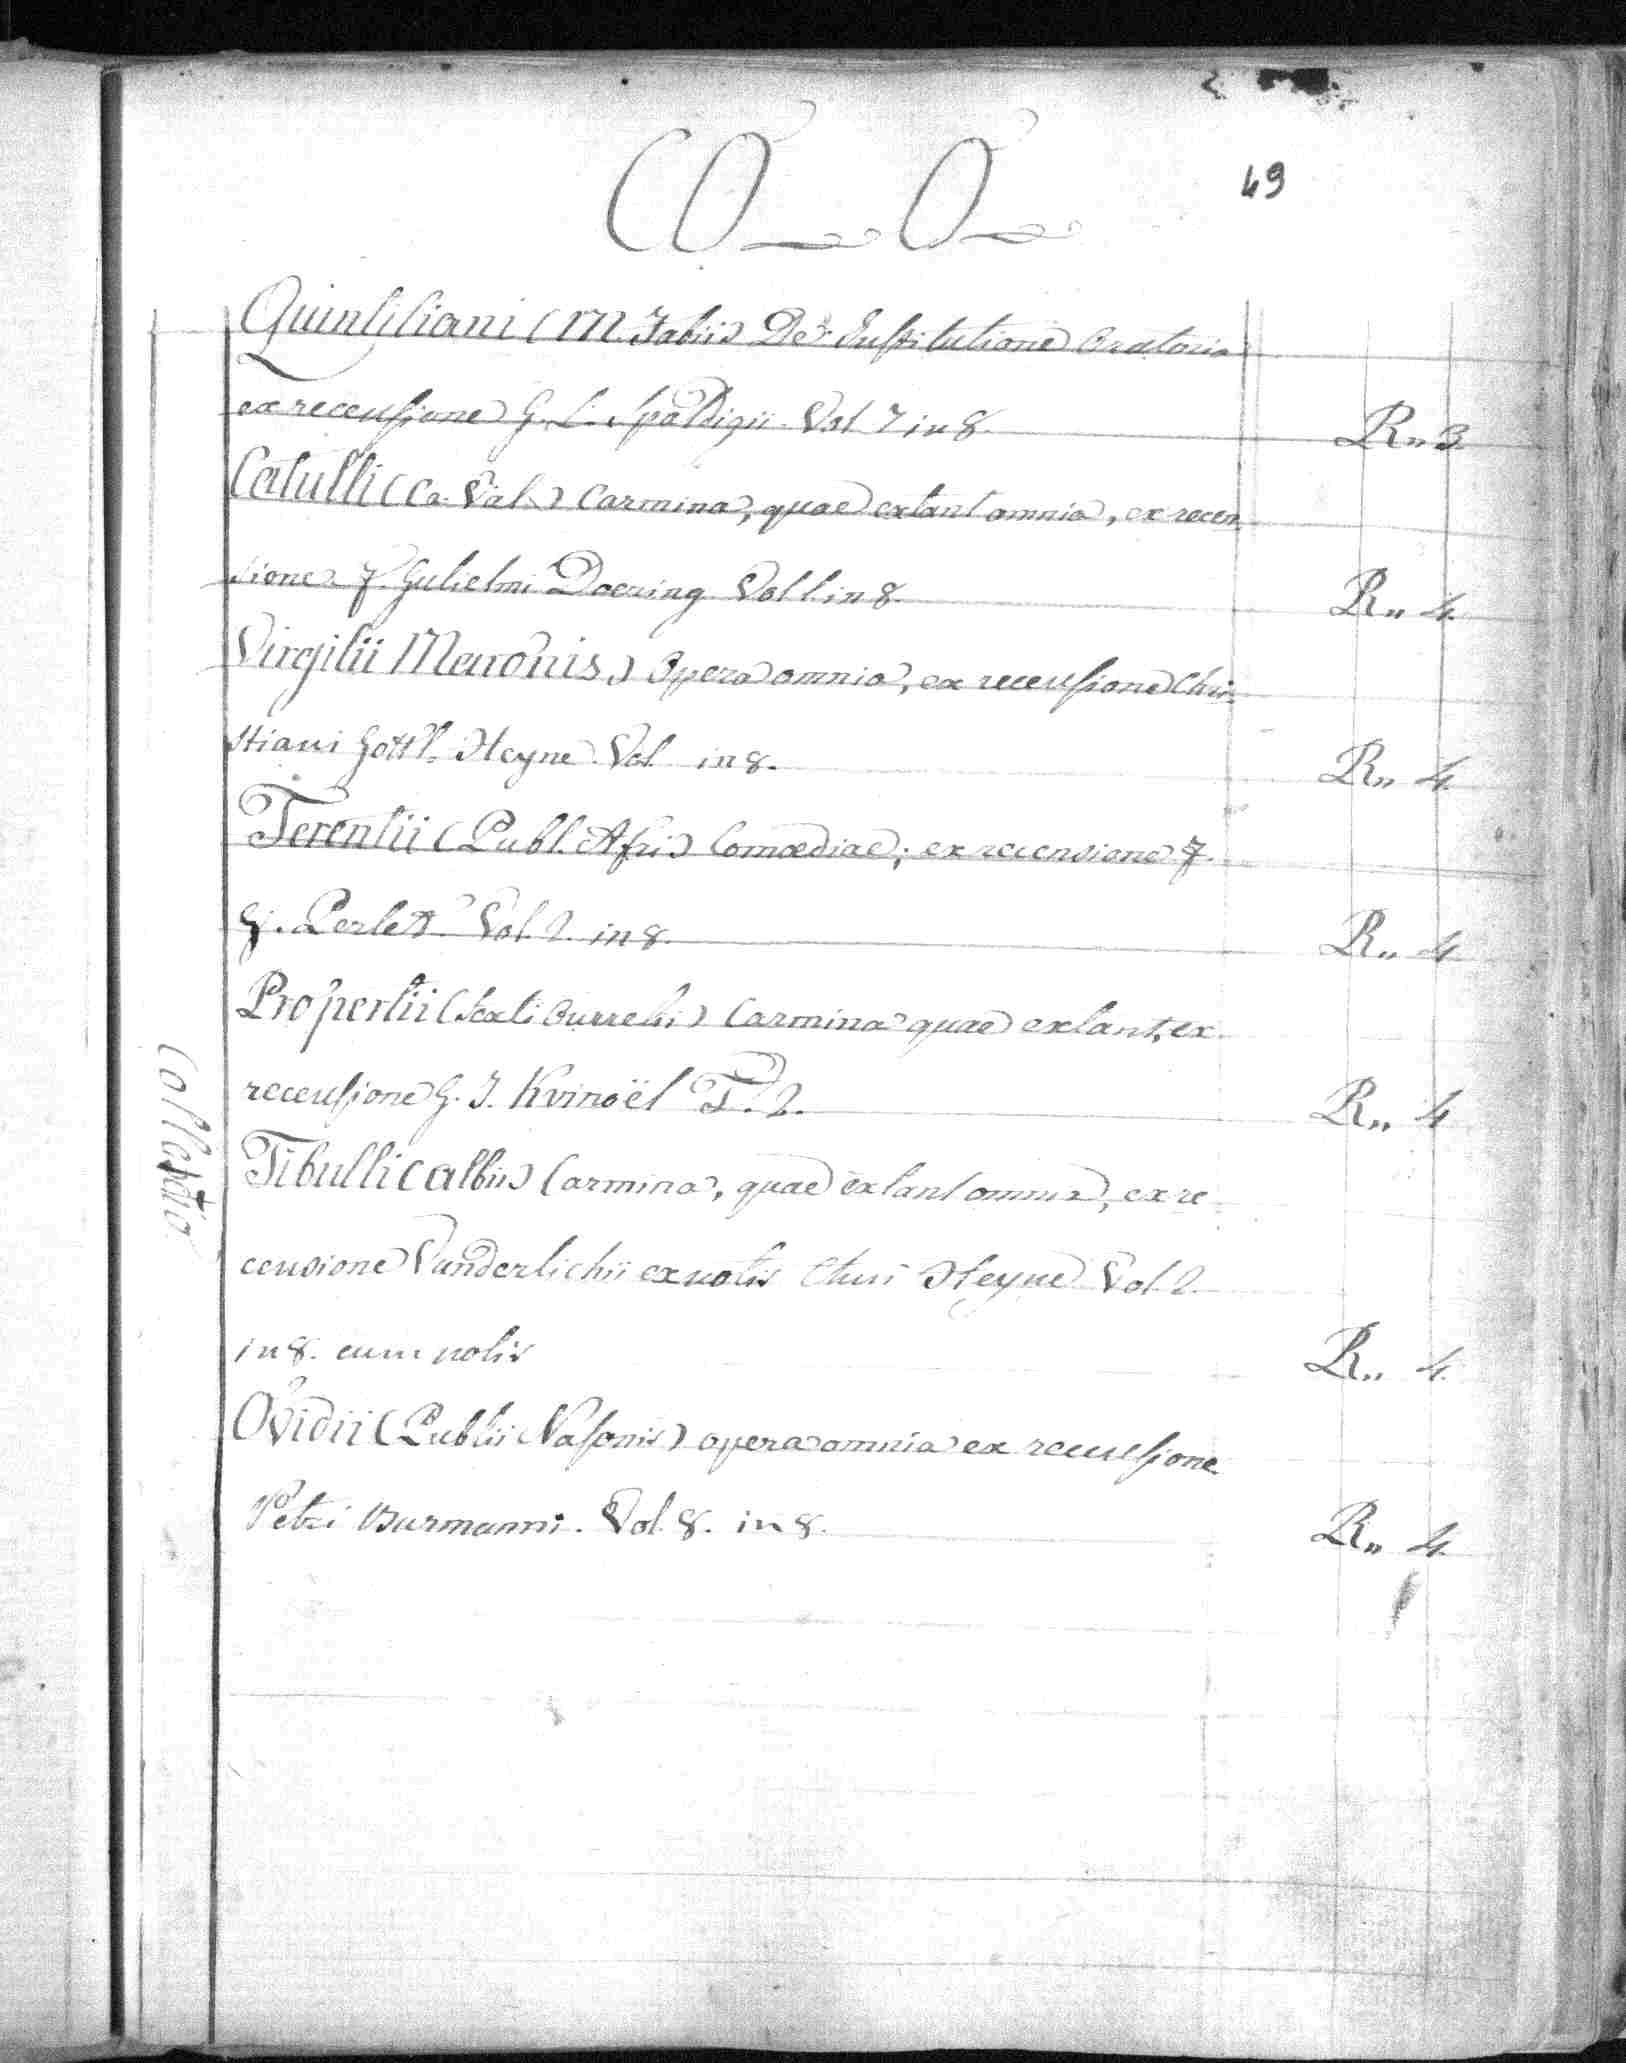 CO O
49
Quintiliani (M. Fabii) De Institutione Oratoria
ex recensione G. L. Spaldigii. Vol 7 in 8.
R„ 3
Catulli (Ca. Val.) Carmina, quae extant omnia, ex recen
sione F. Gulielmi Doering Vol 1. in 8.
R„ 4.
Virgilii Maronis) Opera omnia, ex recensione Chri-
stiani Gottl. Heyne Vol in 8.
R„ 4.
Terentii (Publ. Afri) Comœdiae; ex recensione F.
G. Perlett Vol. 2. in 8.
R„ 4
Propertii (Sexti Aurrelii) Carmina quae extant, ex
recensione G. J. Kvinoël T. 2.
R„ 4
Tibulli (Albii) Carmina, quae extant omnia, ex re
censione Vunderlichii ex notis Heyne Vol. 2
in 8. cum notis
R„ 4.
Ovidii (Publii Nasonis) opera omnia ex recensione
Petri Burmanni. Vol. 8. in 8.
R„ 4.
Collectio